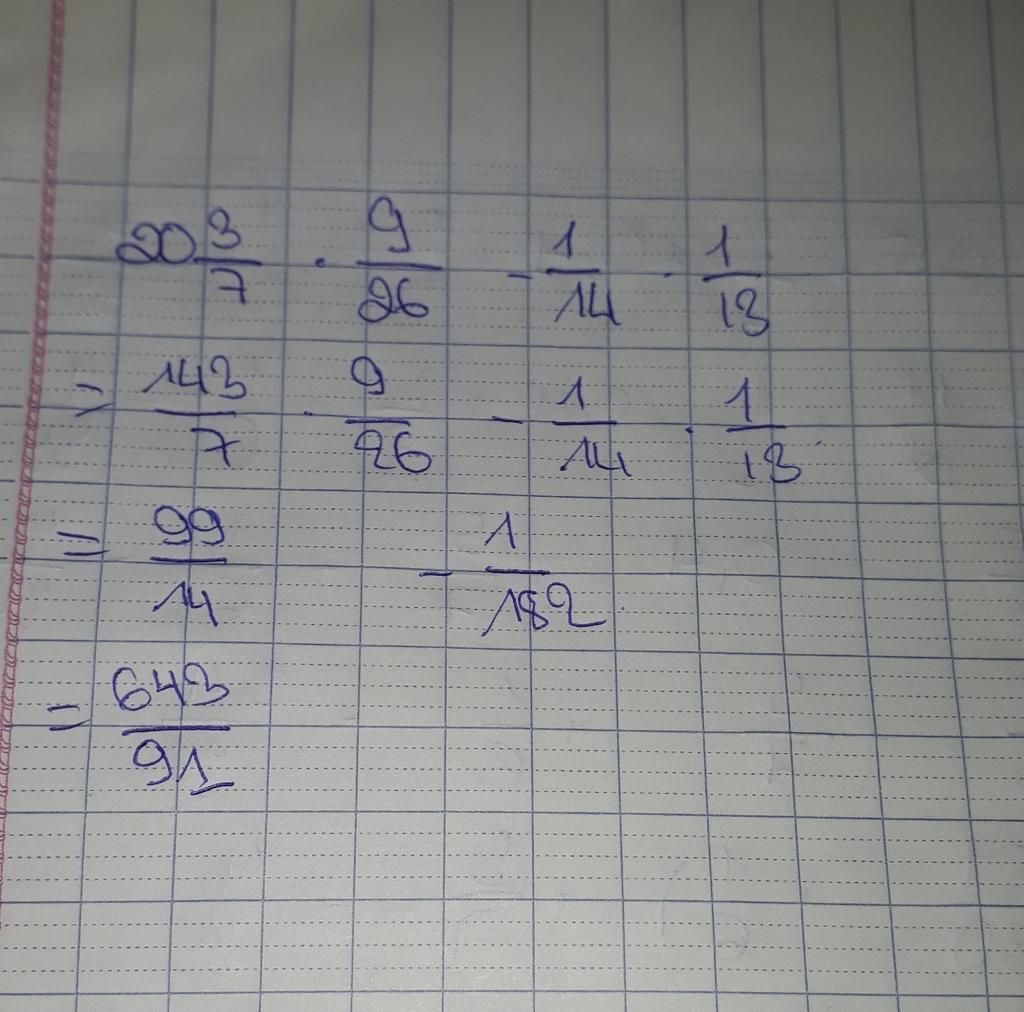 20 3/7 . 9/26 - 1/14 . 1/13
= 143/7 . 9/26 - 1/14 . 1/13
= 99/14 - 1/182
= 643/91